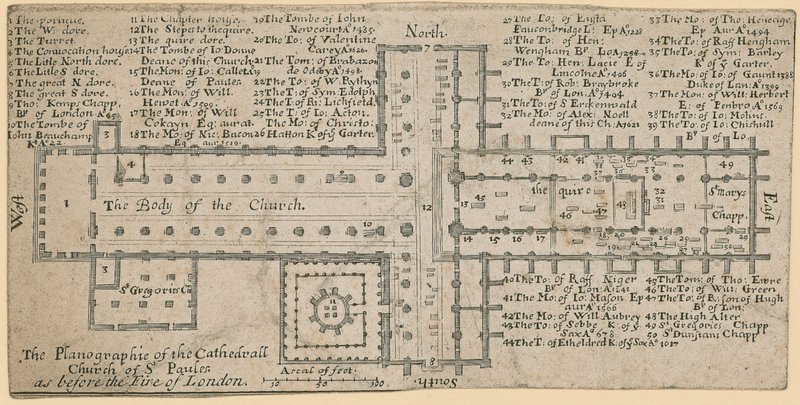 1 The porique.
2 The W. dore.
3 The Turret.
4 The Convocation house
5 The Litle North dore.
6 The Litle S dore.
7 The great N. dore.
8 The great S dore.
9 Tho: Kemps Chapp,
Bp of London
10 The Tombe of
Iohn Beauchamp
11 The Chapter house.
12 The Steps to the quire,
13 The quire dore.
14 The Tombe of Io: Donne
Deane of this Church
15 The Mon: of Io: Collet.
Deane of Paules.
16 The Mon: of Will.
Hewet Ao 1599.
17 The Mon: of Will
Cokayn Eq: aurat.
18 The Mo: of Nic: Bacon
Eq aur 1519.
19 The Tombe of Iohn
Newcourt A: 1485.
20 The To: of Valentine
Carey A: 1626.
21 The Tom: of Brabazon
de Odeby A: 1498.
22 The To: of W: Rythyn
23 The T: of Sym: Edolph
24 The T: of Ri: Lichfield,
25 The T: of Io: Acton.
The Mo: of Christo:
26 Hatton K of ye Garter.
27 The To: of Eusta
Fauconbridge L: Ep A: 1228
28 The To: of Hen:
Wengham Bp Lo A: 1258
29 The To: Hen: Lacie E of
Lincolne Ao 1466
30 The T: of Rob: Braybroke
Bp of Lon: Ao 1404
31 The To: of S Erkenwald
32 The Mo: of Alex: Noell
deane of this Ch: A: 1621
33 The Mo: of Tho: Heneage
Ep Aur Ao 1494
34 The To: of Raff Hengham
35 The To: of Sym: Barley
K of ye Garter.
36 The Mo: of Io: of Gaunt 1388
Duke of Lan: Ao 1399
37 The Mon: of Will: Herbert
E: of Penbro Ao 1569
38 The To: of Io: Molins.
39 The To: of Io: Chishull
Bp of Lo
North.
7
West
1
2
3
4
5
9
The Body of the Church.
10
12
3
St Gregories Ca
11
13
14
15
16
17
44
43
42
41
the quire
45
46
47
48
32
31
33
49
St Marys
Chapp.
East
8
South
40 The To: of Raff Niger
Bp of Lon: Ao 1241
41 The Mo: of Io: Mason Ep
aur Ao 1566
42 The Mo: of Will Aubrey
44 The To: of Sebbe K of ye
Sax Ao 678
44 The T: of Etheldred K: of ye Sax Ao 1017
45 The Tom: of Tho: Ewre
46 The To: of Will: Green
47 The To: of R: son of Hugh
Bp of Lon:
48 The High Alter
49 St Gregories Chapp
50 St Dunstans Chapp
The Planographie of the Cathedrall
Church of St Paules.
as before the Fire of London.
A scal of feet.
10 50 100